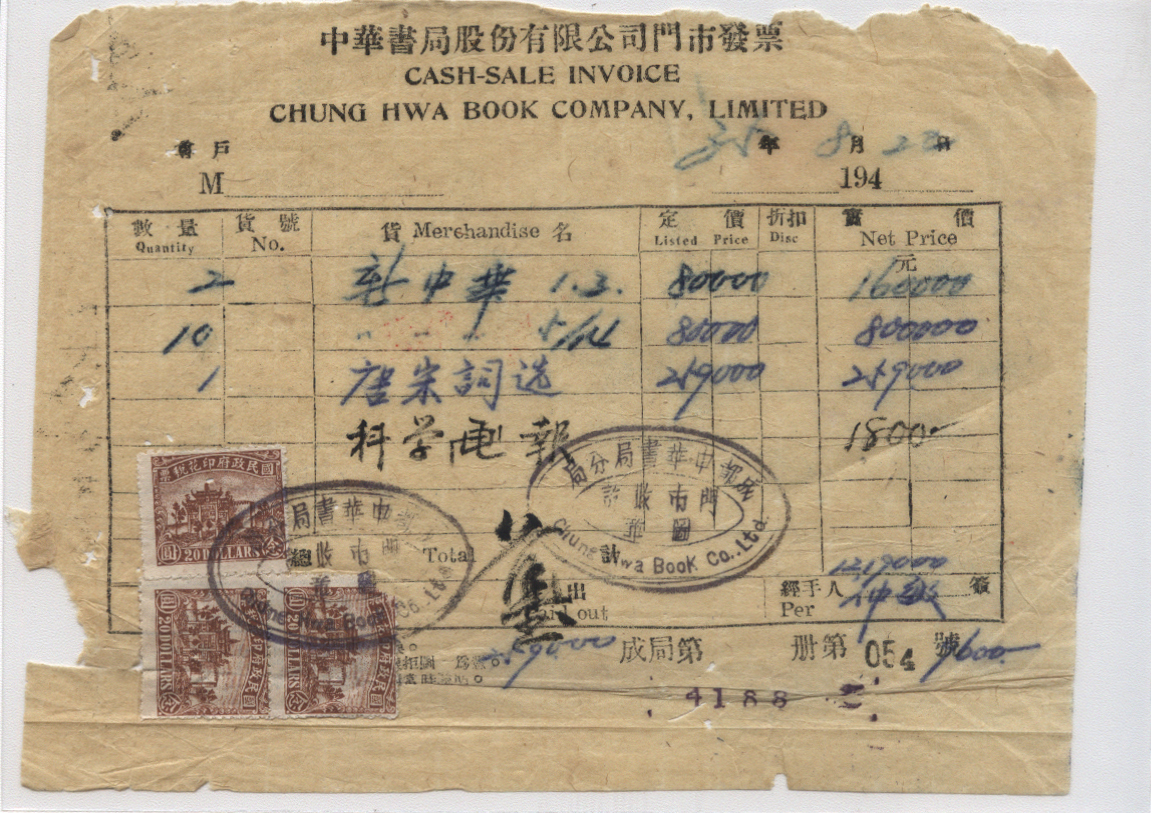 中華書局股份有限公司門市發票
CASH-SALE INVOICE
CHUNG HWA BOOK COMPANY, LIMITED
尊戶 35年 8月 日
M 194
數量 貨號 貨 Merchandise 名 定價 折扣 實價
Quantity No. Listed Price Disc Net Price
元
2 新中華 1.2. 80000 160000
10 〃 〃 〃 80000 800000
1 唐宋詞选 259000 259000
科学画報 1800-
國民政府印花稅票
20 DOLLARS
成都中華書局分局
門市收訖
圖章
Chung Hwa Book Co., Ltd.
中華書局
門市收
Chung Hwa Book Co., Ltd.
總 Total 計 1219000
出 經手人 簽
Paid out Per
259000 成局第 册第 054 號 9600-
4188
國民政府印花稅票
20 DOLLARS
國民政府印花稅票
20 DOLLARS